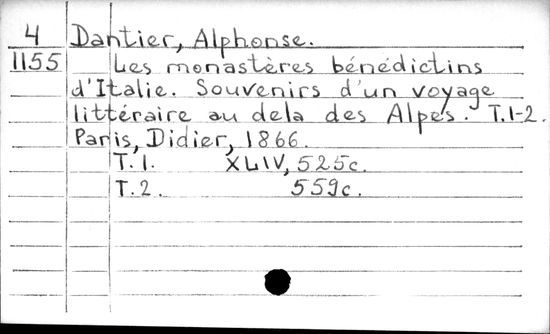 4 Dantier, Alphonse.
1155 Les monastères bénédictins
d'Italie. Souvenirs d'un voyage
littéraire au dela des Alpes. T.1-2.
Paris, Didier, 1866.
T.1. XLIV, 525c.
T.2. 559c.